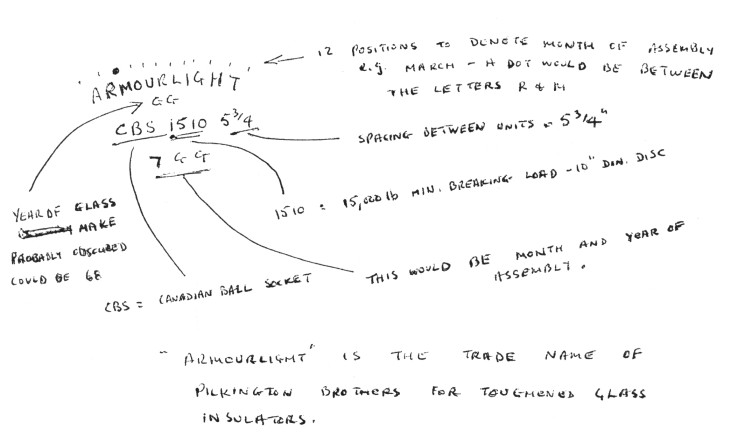 12 POSITIONS TO DENOTE MONTH OF ASSEMBLY
e.g. MARCH - A DOT WOULD BE BETWEEN
THE LETTERS R & M
ARMOURLIGHT
GG
CBS 1510 5 3/4
7 GG
SPACING BETWEEN UNITS = 5 3/4"
1510 = 15,000 lb MIN. BREAKING LOAD - 10" DIM. DISC
YEAR OF GLASS
MAKE
PROBABLY OBSCURED
COULD BE 68
CBS = CANADIAN BALL SOCKET
THIS WOULD BE MONTH AND YEAR OF
ASSEMBLY.
"ARMOURLIGHT" IS THE TRADE NAME OF
PILKINGTON BROTHERS FOR TOUGHENED GLASS
INSULATORS.